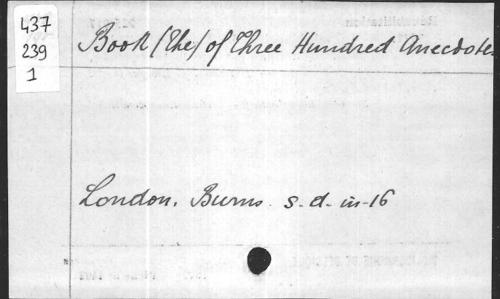 437
239
1
Book (The) of Three Hundred Anecdotes
London. Burns. s. d. in-16